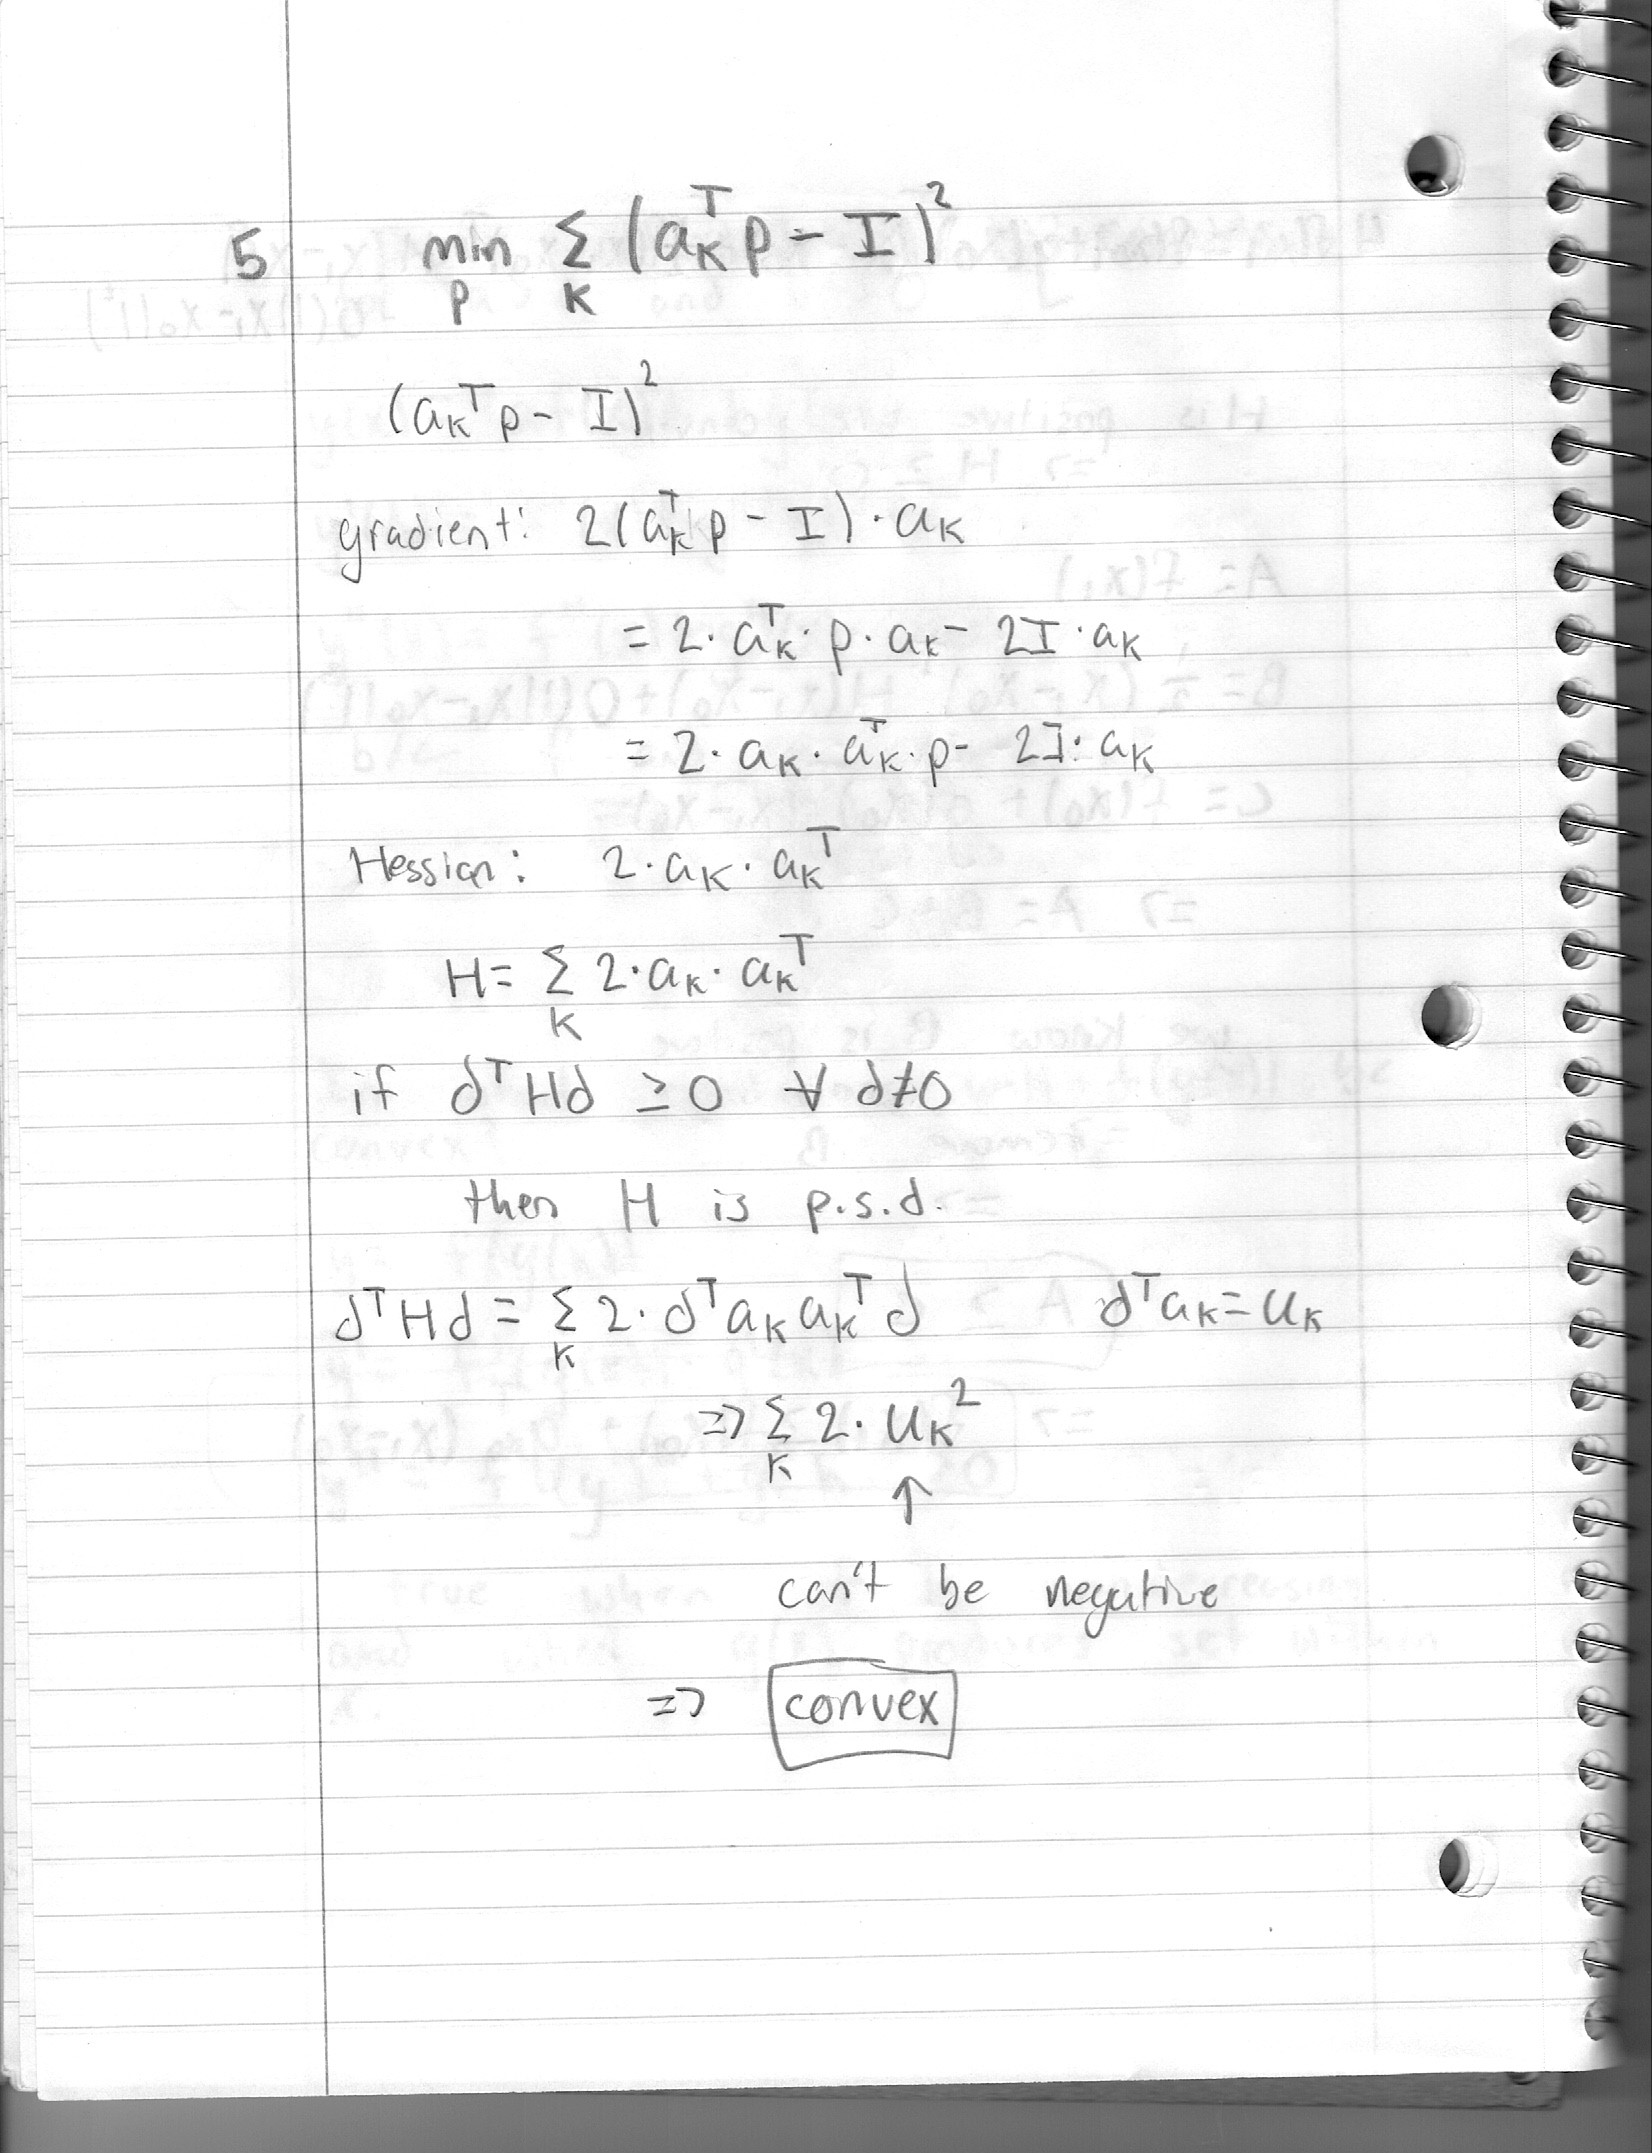 5 min Σ (aₖᵀ p - I)²
p K
(aₖᵀ p - I)²
gradient: 2(aₖᵀ p - I) · aₖ
= 2 · aₖᵀ · p · aₖ - 2I · aₖ
= 2 · aₖ · aₖᵀ · p - 2I · aₖ
Hessian: 2 · aₖ · aₖᵀ
H = Σ 2 · aₖ · aₖᵀ
K
if dᵀHd ≥ 0 ∀ d≠0
then H is p.s.d.
dᵀHd = Σ 2 · dᵀaₖaₖᵀd dᵀaₖ = uₖ
K
=> Σ 2 · uₖ²
K
↑
can't be negative
=> convex